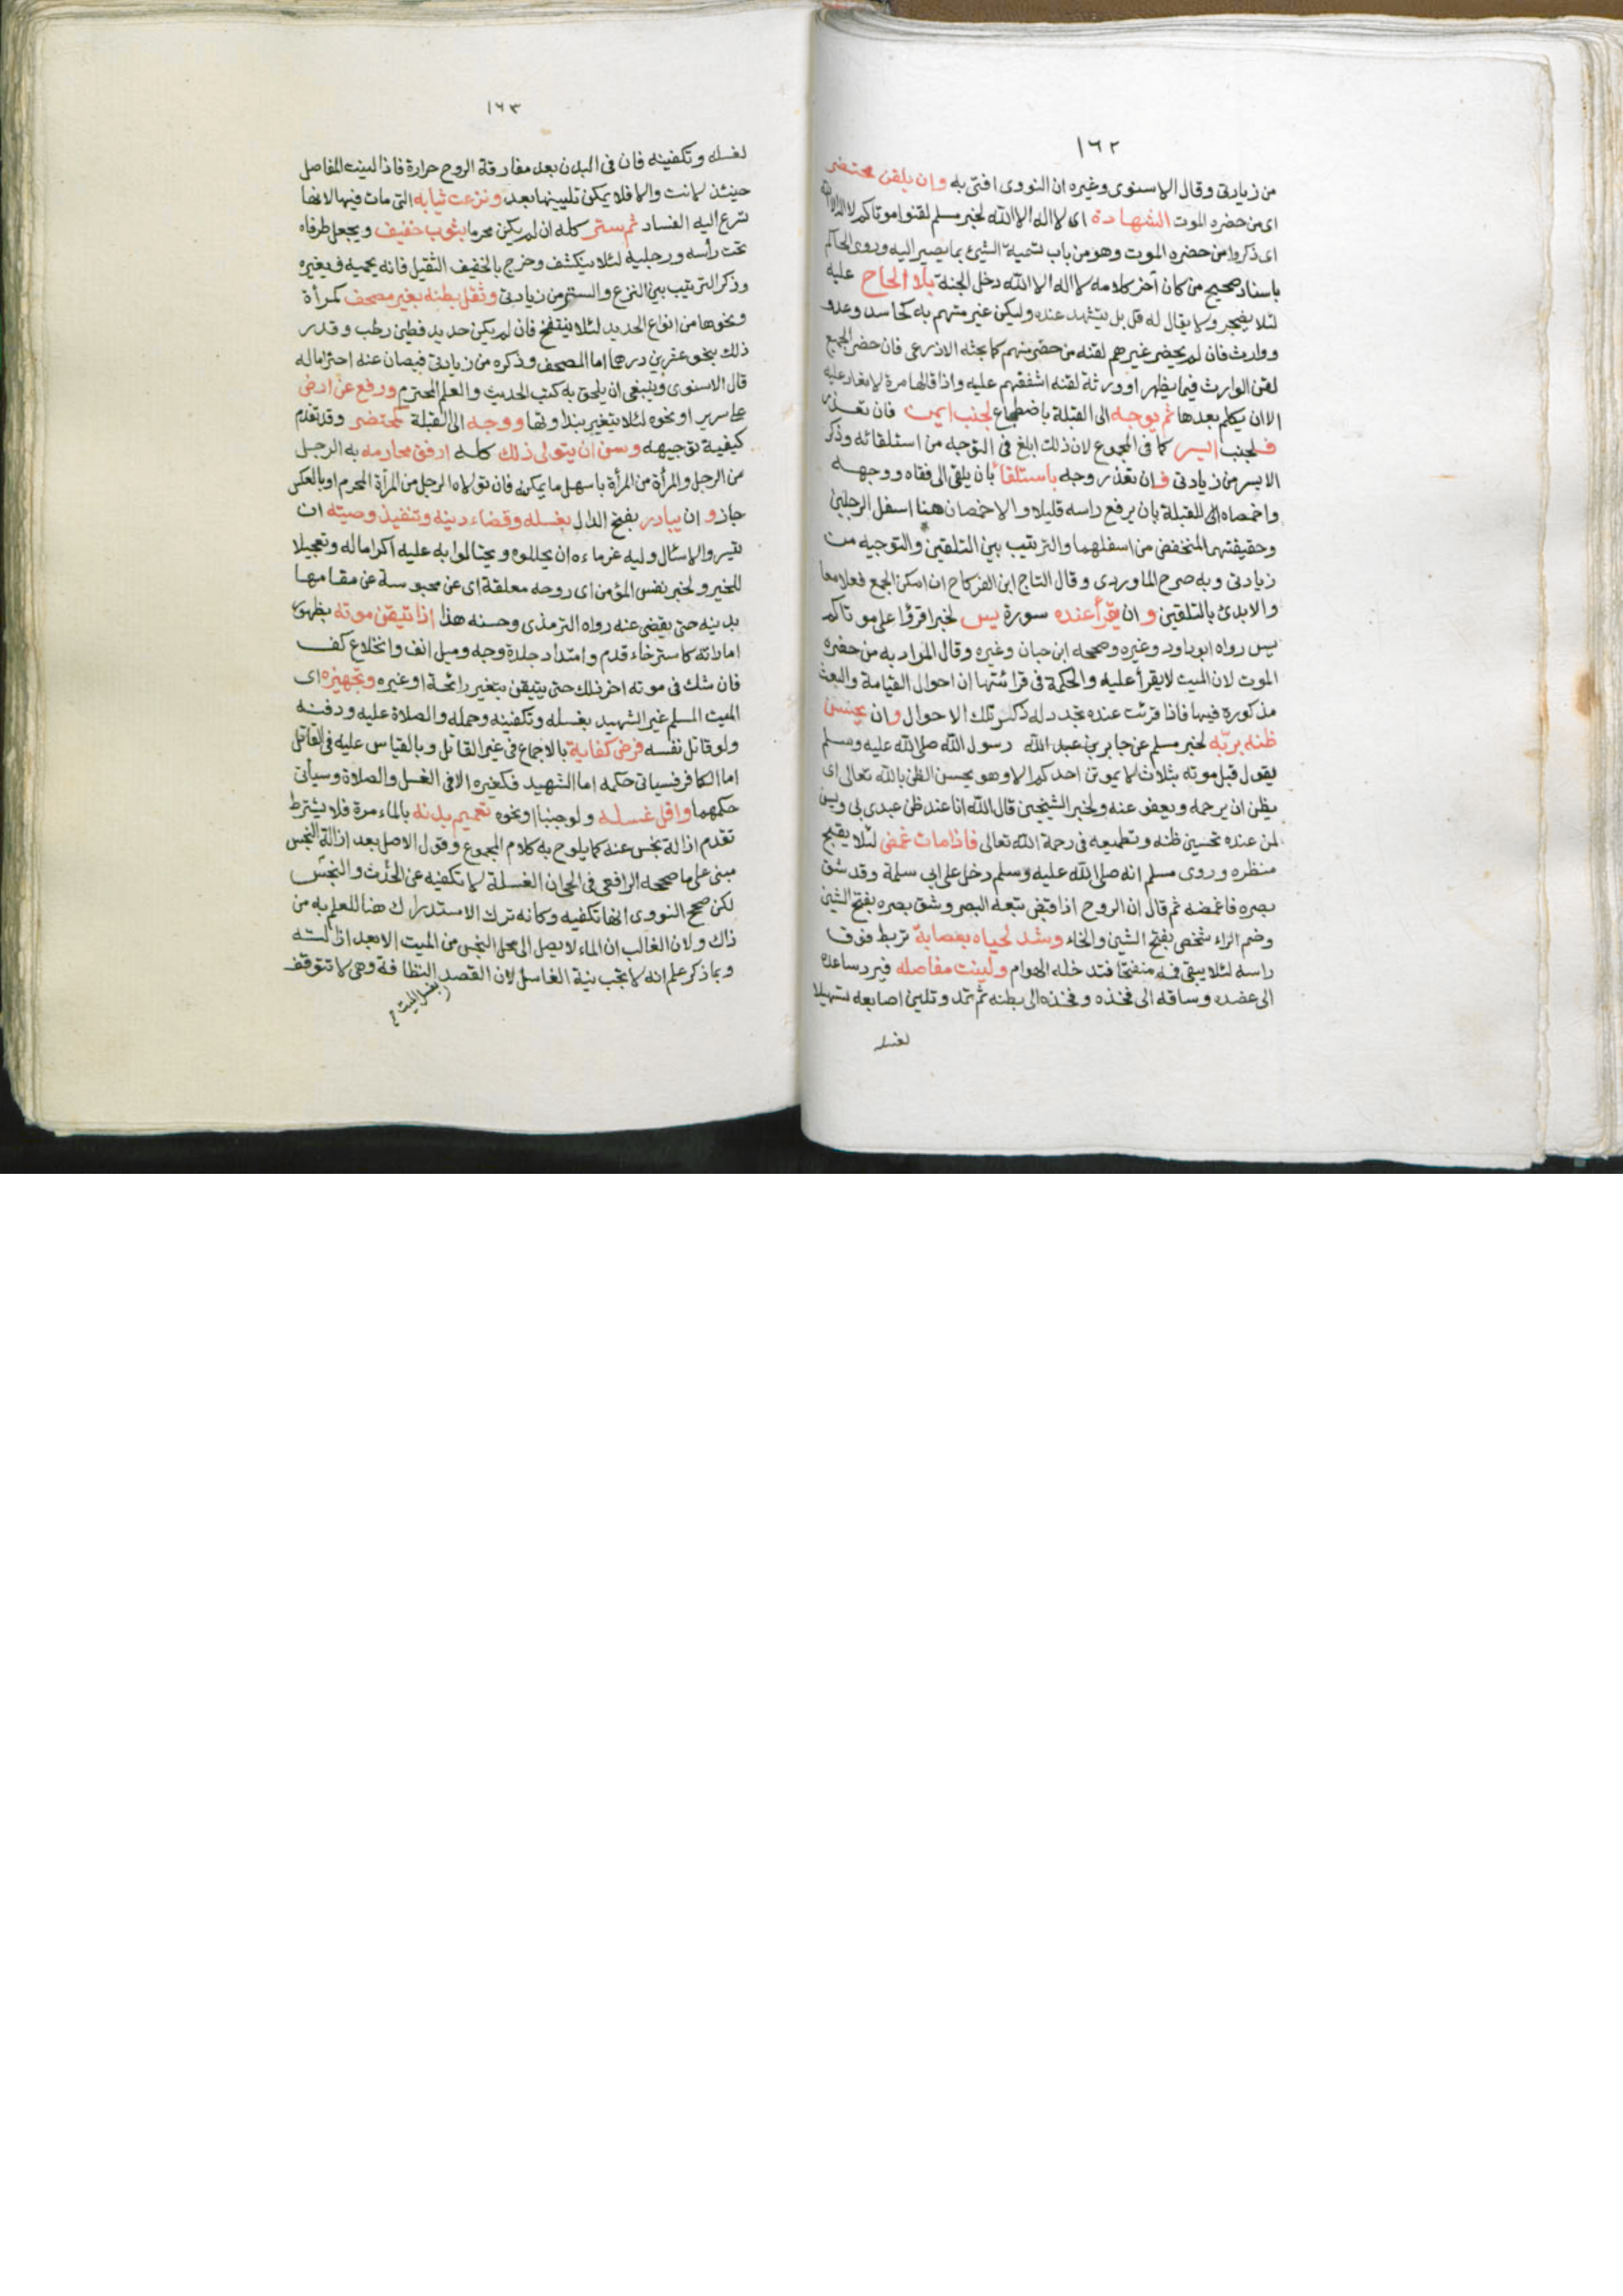 ١٦٢
من زيادتي وقال الاسنوى وغيره ان النووى افتى به وان يلقن محتضر
اى من حضره الموت الشهادة اى لا اله الا الله لخبر مسلم لقنوا موتاكم لا اله الا الله
اى ذكروا من حضره الموت وهو من باب تسمية الشئ بما يصير اليه وروى الحاكم
باسناد صحيح من كان آخر كلامه لا اله الا الله دخل الجنة بلا الحاح عليه
لئلا يضجر ولا يقال له قل بل يتشهد عنده وليكن غير متهم به كحاسد وعدو
ووارث فان لم يحضر غيرهم لقنه من حضر منهم كما بحثه الاذرعى فان حضر الجميع
لقن الوارث فيما يظهر او ورثة لقنه اشفقهم عليه واذا قالها مرة لا تعاد عليه
الا ان يتكلم بعدها ثم يوجه الى القبلة باضطجاع لجنب ايمن فان تعذر
فلجنب ايسر كما فى المجموع لان ذلك ابلغ فى التوجه من استلقائه وذكر
الايسر من زيادتى فان تعذر وجه باستلقا بان يلقى الى قفاه ووجهه
واخمصاه الى للقبلة بان يرفع راسه قليلا والاخمصان هنا اسفل الرجلين
وحقيقتهما المنخفض من اسفلهما والترتيب بين التلقين والتوجيه من
زيادتى وبه صرح الماوردى وقال التاج ابن الفركاح ان امكن الجمع فعلا معا
والا بدئ بالتلقين وان يقرأ عنده سورة يس لخبر اقرؤا على موتاكم
يس رواه ابو داود وغيره وصححه ابن حبان وغيره وقال المراد به من حضره
الموت لان الميت لا يقرأ عليه والحكمة فى قرائتها ان احوال القيامة والبعث
مذكورة فيها فاذا قرئت عنده تجدد له ذكر تلك الاحوال وان يحسن
ظنه بربّه لخبر مسلم عن جابر بن عبد الله رسول الله صلى الله عليه وسلم
يقول قبل موته بثلاث لا يموتن احدكم الا وهو يحسن الظن بالله تعالى اى
يظن ان يرحمه ويعفو عنه ولخبر الشيخين قال الله انا عند ظن عبدى بى ويسن
لمن عنده تحسين ظنه وتطميعه فى رحمة الله تعالى فاذا مات غمض لئلا يقبح
منظره وروى مسلم انه صلى الله عليه وسلم دخل على ابى سلمة وقد شق
بصره فاغمضه ثم قال ان الروح اذا قبض تبعه البصر وشق بصره بفتح الشين
وضم الراء شخص بفتح الشين والخاء وشد لحياه بعصابة تربط فوق
راسه لئلا يبقى فمه منفتحا فتدخله الهوام ولينت مفاصله فيرد ساعده
الى عضده وساقه الى فخذه وفخذه الى بطنه ثم تمد وتلين اصابعه تسهيلا
لغسله
١٦٣
لغسله وتكفينه فان فى البدن بعد مفارقة الروح حرارة فاذا لينت المفاصل
حينئذ لانت والا فلا يمكن تليينها بعد ونزعت ثيابه التى مات فيها لانها
تسرع اليه الفساد ثم ستر كله ان لم يكن محرما بثوب خفيف ويجعل طرفاه
تحت رأسه ورجليه لئلا ينكشف وخرج بالخفيف الثقيل فانه يحميه فيغيره
وذكر الترتيب بين النزع والستر من زيادتى وثقل بطنه بغير مصحف كمرآة
ونحوها من انواع الحديد لئلا ينتفخ فان لم يكن حديد فطين رطب وقدر
ذلك بنحو عشرين درهما اما المصحف وذكره من زيادتى فيصان عنه احتراما له
قال الاسنوى وينبغى ان يلحق به كتب الحديث والعلم المحترم ورفع عن ارض
على سرير او نحوه لئلا يتغير بنداوتها ووجه الى القبلة كمحتضر وقد تقدم
كيفية توجيهه وسن ان يتولى ذلك كله ارفق محارمه به الرجل
من الرجل والمرأة من المرأة باسهل ما يمكنه فان تولاه الرجل من المرأة المحرم او بالعكس
جاز و ان يبادر بفتح الدال بغسله وقضاء دينه وتنفيذ وصيته ان
تيسر والا سئال وليه غرماءه ان يحللوه ويحتالوا به عليه اكراما له وتعجيلا
للخير ولخبر نفس المؤمن اى روحه معلقة اى عن محبوسة عن مقامها
بدينه حتى يقضى عنه رواه الترمذى وحسنه هذا اذا تيقن موته بظهور
اماراته كاسترخاء قدم وامتداد جلدة وجه وميل انف وانخلاع كف
فان شك فى موته اخر ذلك حتى يتيقن بتغير رائحة او غيره وتجهيزه اى
الميت المسلم غير الشهيد بغسله وتكفينه وحمله والصلاة عليه ودفنه
ولو قاتل نفسه فرض كفاية بالاجماع فى غير القاتل وبالقياس عليه فى القاتل
اما الكافر فسياتى حكمه اما الشهيد فكغيره الا فى الغسل والصلاة وسيأتى
حكمهما واقل غسله ولو جنبا او نحوه تعميم بدنه بالماء مرة فلا يشترط
تقدم ازالة نجس عنه كما يلوح به كلام المجموع وقول الاصل بعد ازالة النجس
مبنى على ما صححه الرافعى فى الحى ان الغسلة لا تكفيه عن الحدث والنجس
لكن صحح النووى انها تكفيه وكانه ترك الاستدراك هنا للعلم به من
ذاك ولان الغالب ان الماء لا يصل الى محل النجس من الميت الا بعد ازالته
وبما ذكر علم انه لا تجب نية الغاسل لان القصد النظافة وهى لا تتوقف
بغسل الميت